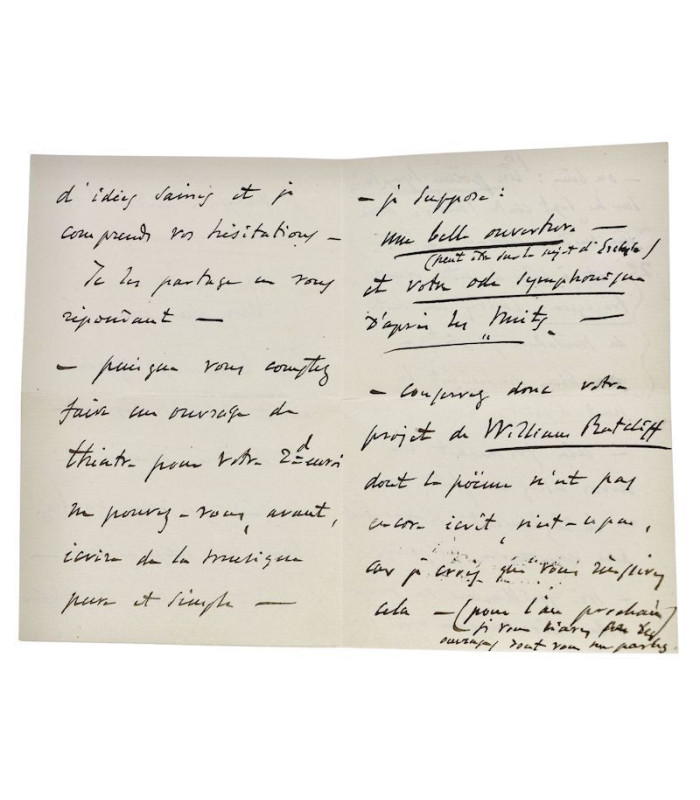 d'idées saines et je
comprends vos hésitations —
Je les partage en vous
répondant —
— puisque vous comptez
faire un ouvrage de
théâtre pour votre 2d envoi
ne pouvez-vous, avant,
écrire de la musique
pure et simple —
— je suppose :
une belle ouverture —
(peut être sur le sujet d'Eschyle)
et votre ode symphonique
d'après les "Nuits" —
— conservez donc votre
projet de William Ratcliff
dont le poëme n'est pas
encore écrit, n'est-ce pas,
car je crois que vous réussirez
cela — (pour l'an prochain)
si vous n'avez pas des
ouvrages dont vous me parlez